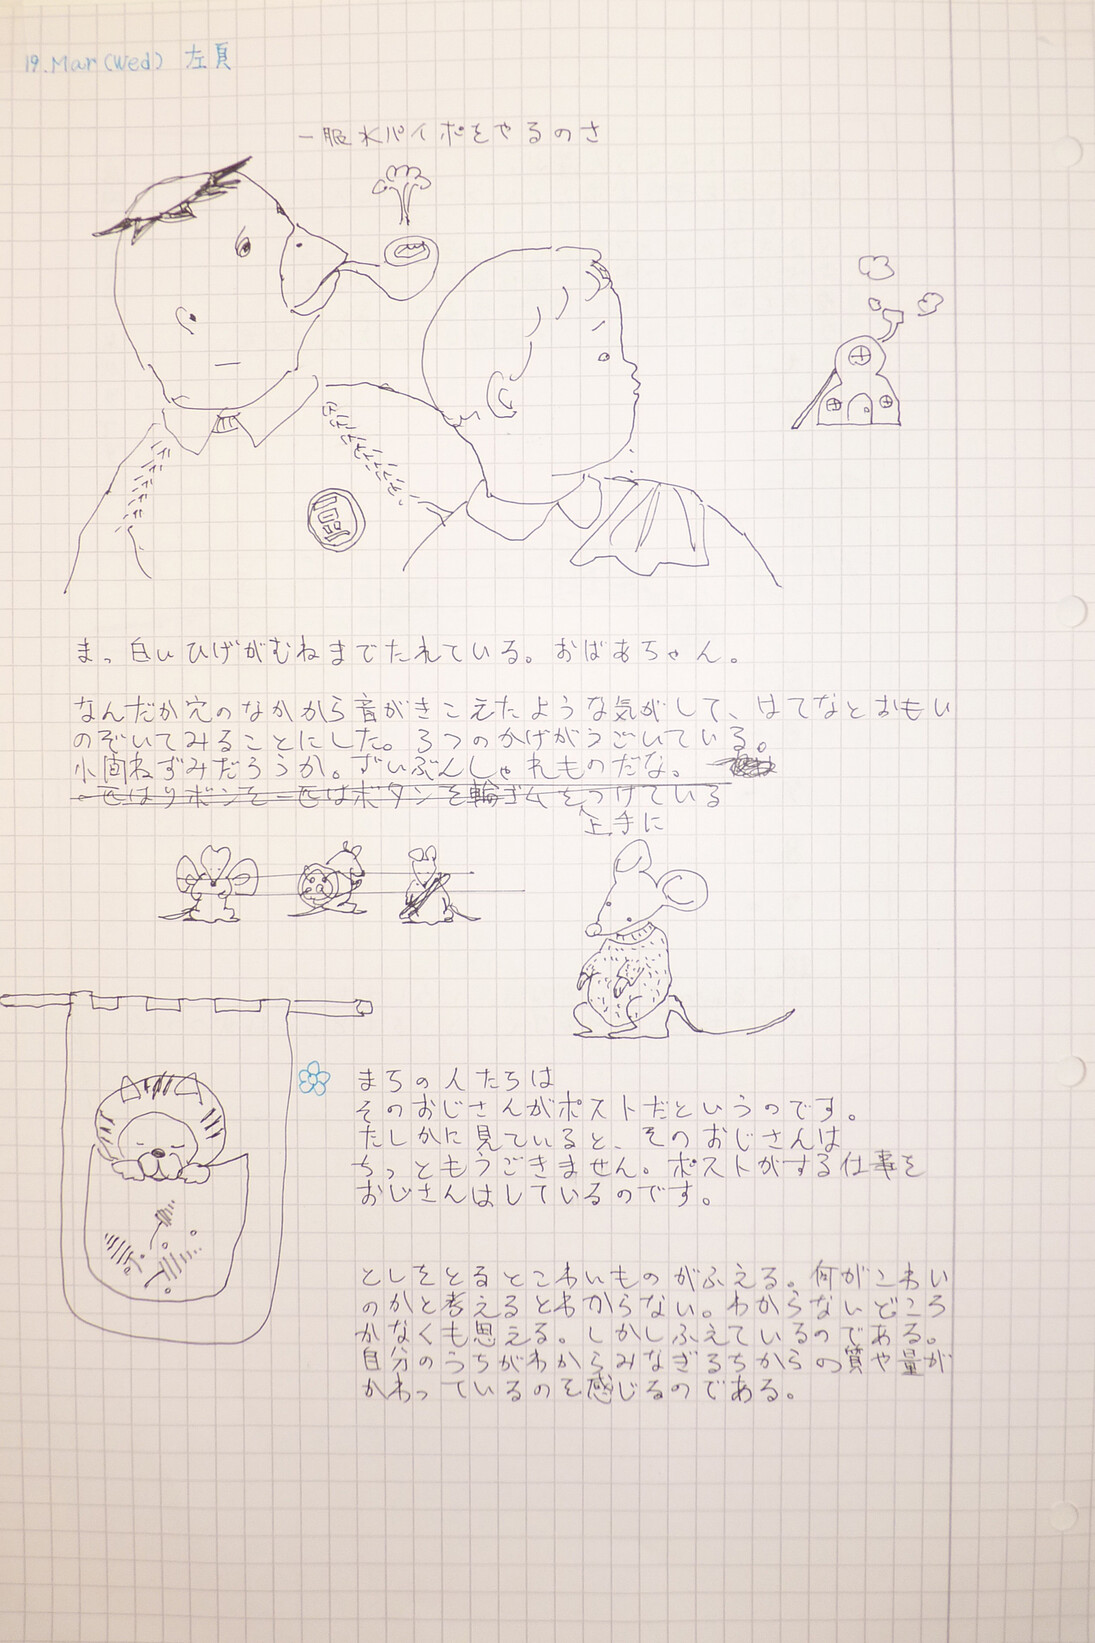 19.Mar(Wed) 左頁
一服水パイポをやるのさ
まっ白いひげがむねまでたれている。おばあちゃん。
なんだか穴のなかから音がきこえたような気がして、はてなとおもい
のぞいてみることにした。3つのかげがうごいている。
小歯ねずみだろうか。ずいぶんしゃれものだな。
一匹はリボンを一匹はボタンを輪ゴムをつけている
上手に
まちの人たちは
そのおじさんがポストだというのです。
たしかに見ていると、そのおじさんは
ちっともうごきません。ポストがする仕事を
おじさんはしているのです。
としをとるとこわいものがふえる。何がこわい
のかと考えるとわからない。わからないどころ
かなくも思える。しかしふえているのである。
自分のうちがわからみなぎるちからの質や量が
かわっているのを感じるのである。